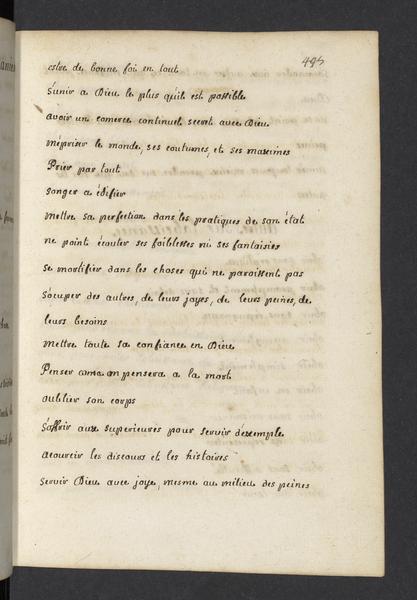 495
estre de bonne foi en tout
S'unir a Dieu le plus qu'il est possible
avoir un comerce continuel secret avec Dieu
mépriser le monde, ses coutumes, et ses maximes
Prier par tout
songer a édifier
mettre sa perfection dans les pratiques de son état
ne point écouter ses foiblesses ni ses fantaisies
se mortifier dans les choses qui ne paroissent pas
S'ocuper des autres, de leurs joyes, de leurs peines, de
leurs besoins
mettre toute sa confiance en Dieu
Penser come on pensera a la mort
oublier son corps
S'offrir aux superieures pour servir d'exemple
acourcir les discours et les histoires
servir Dieu avec joye, mesme au milieu des peines